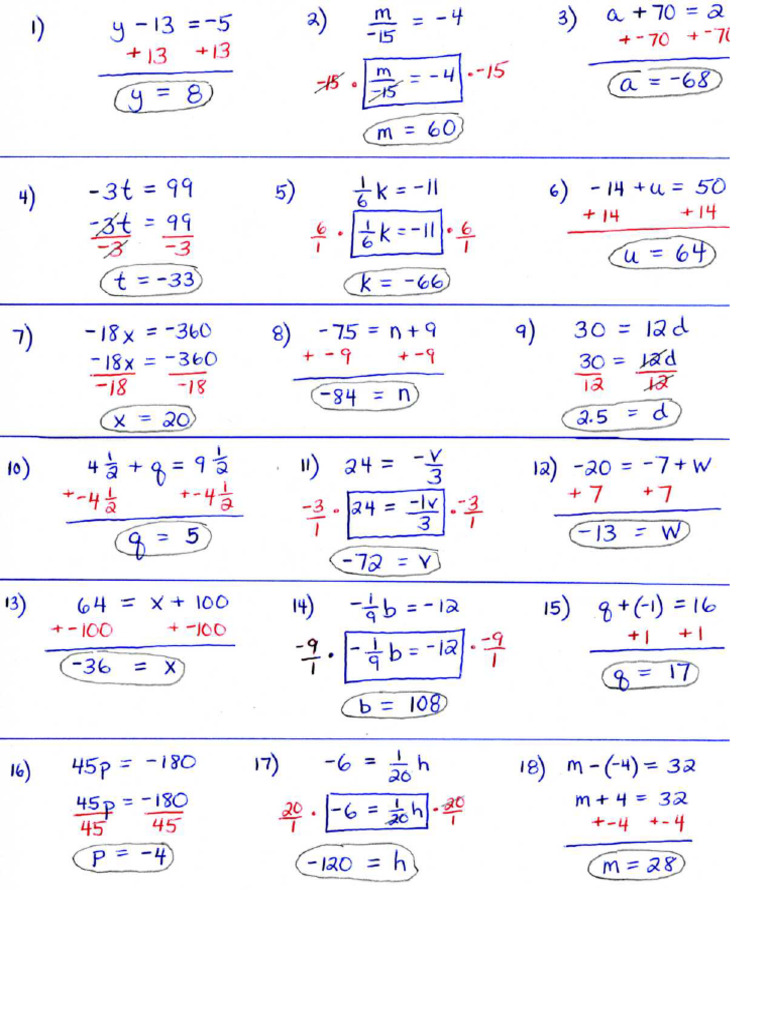 1) y - 13 = -5
+13 +13
y = 8
2) m/-15 = -4
-15 · m/-15 = -4 · -15
m = 60
3) a + 70 = 2
+-70 +-70
a = -68
4) -3t = 99
-3t/-3 = 99/-3
t = -33
5) 1/6 k = -11
6/1 · 1/6 k = -11 · 6/1
k = -66
6) -14 + u = 50
+14 +14
u = 64
7) -18x = -360
-18x/-18 = -360/-18
x = 20
8) -75 = n + 9
+ -9 + -9
-84 = n
9) 30 = 12d
30/12 = 12d/12
2.5 = d
10) 4 1/2 + q = 9 1/2
+-4 1/2 +-4 1/2
q = 5
11) 24 = -v/3
-3/1 · 24 = -1v/3 · -3/1
-72 = v
12) -20 = -7 + w
+7 +7
-13 = w
13) 64 = x + 100
+-100 +-100
-36 = x
14) -1/9 b = -12
-9/1 · -1/9 b = -12 · -9/1
b = 108
15) q + (-1) = 16
+1 +1
q = 17
16) 45p = -180
45p/45 = -180/45
p = -4
17) -6 = 1/20 h
20/1 · -6 = 1/20 h · 20/1
-120 = h
18) m - (-4) = 32
m + 4 = 32
+-4 +-4
m = 28